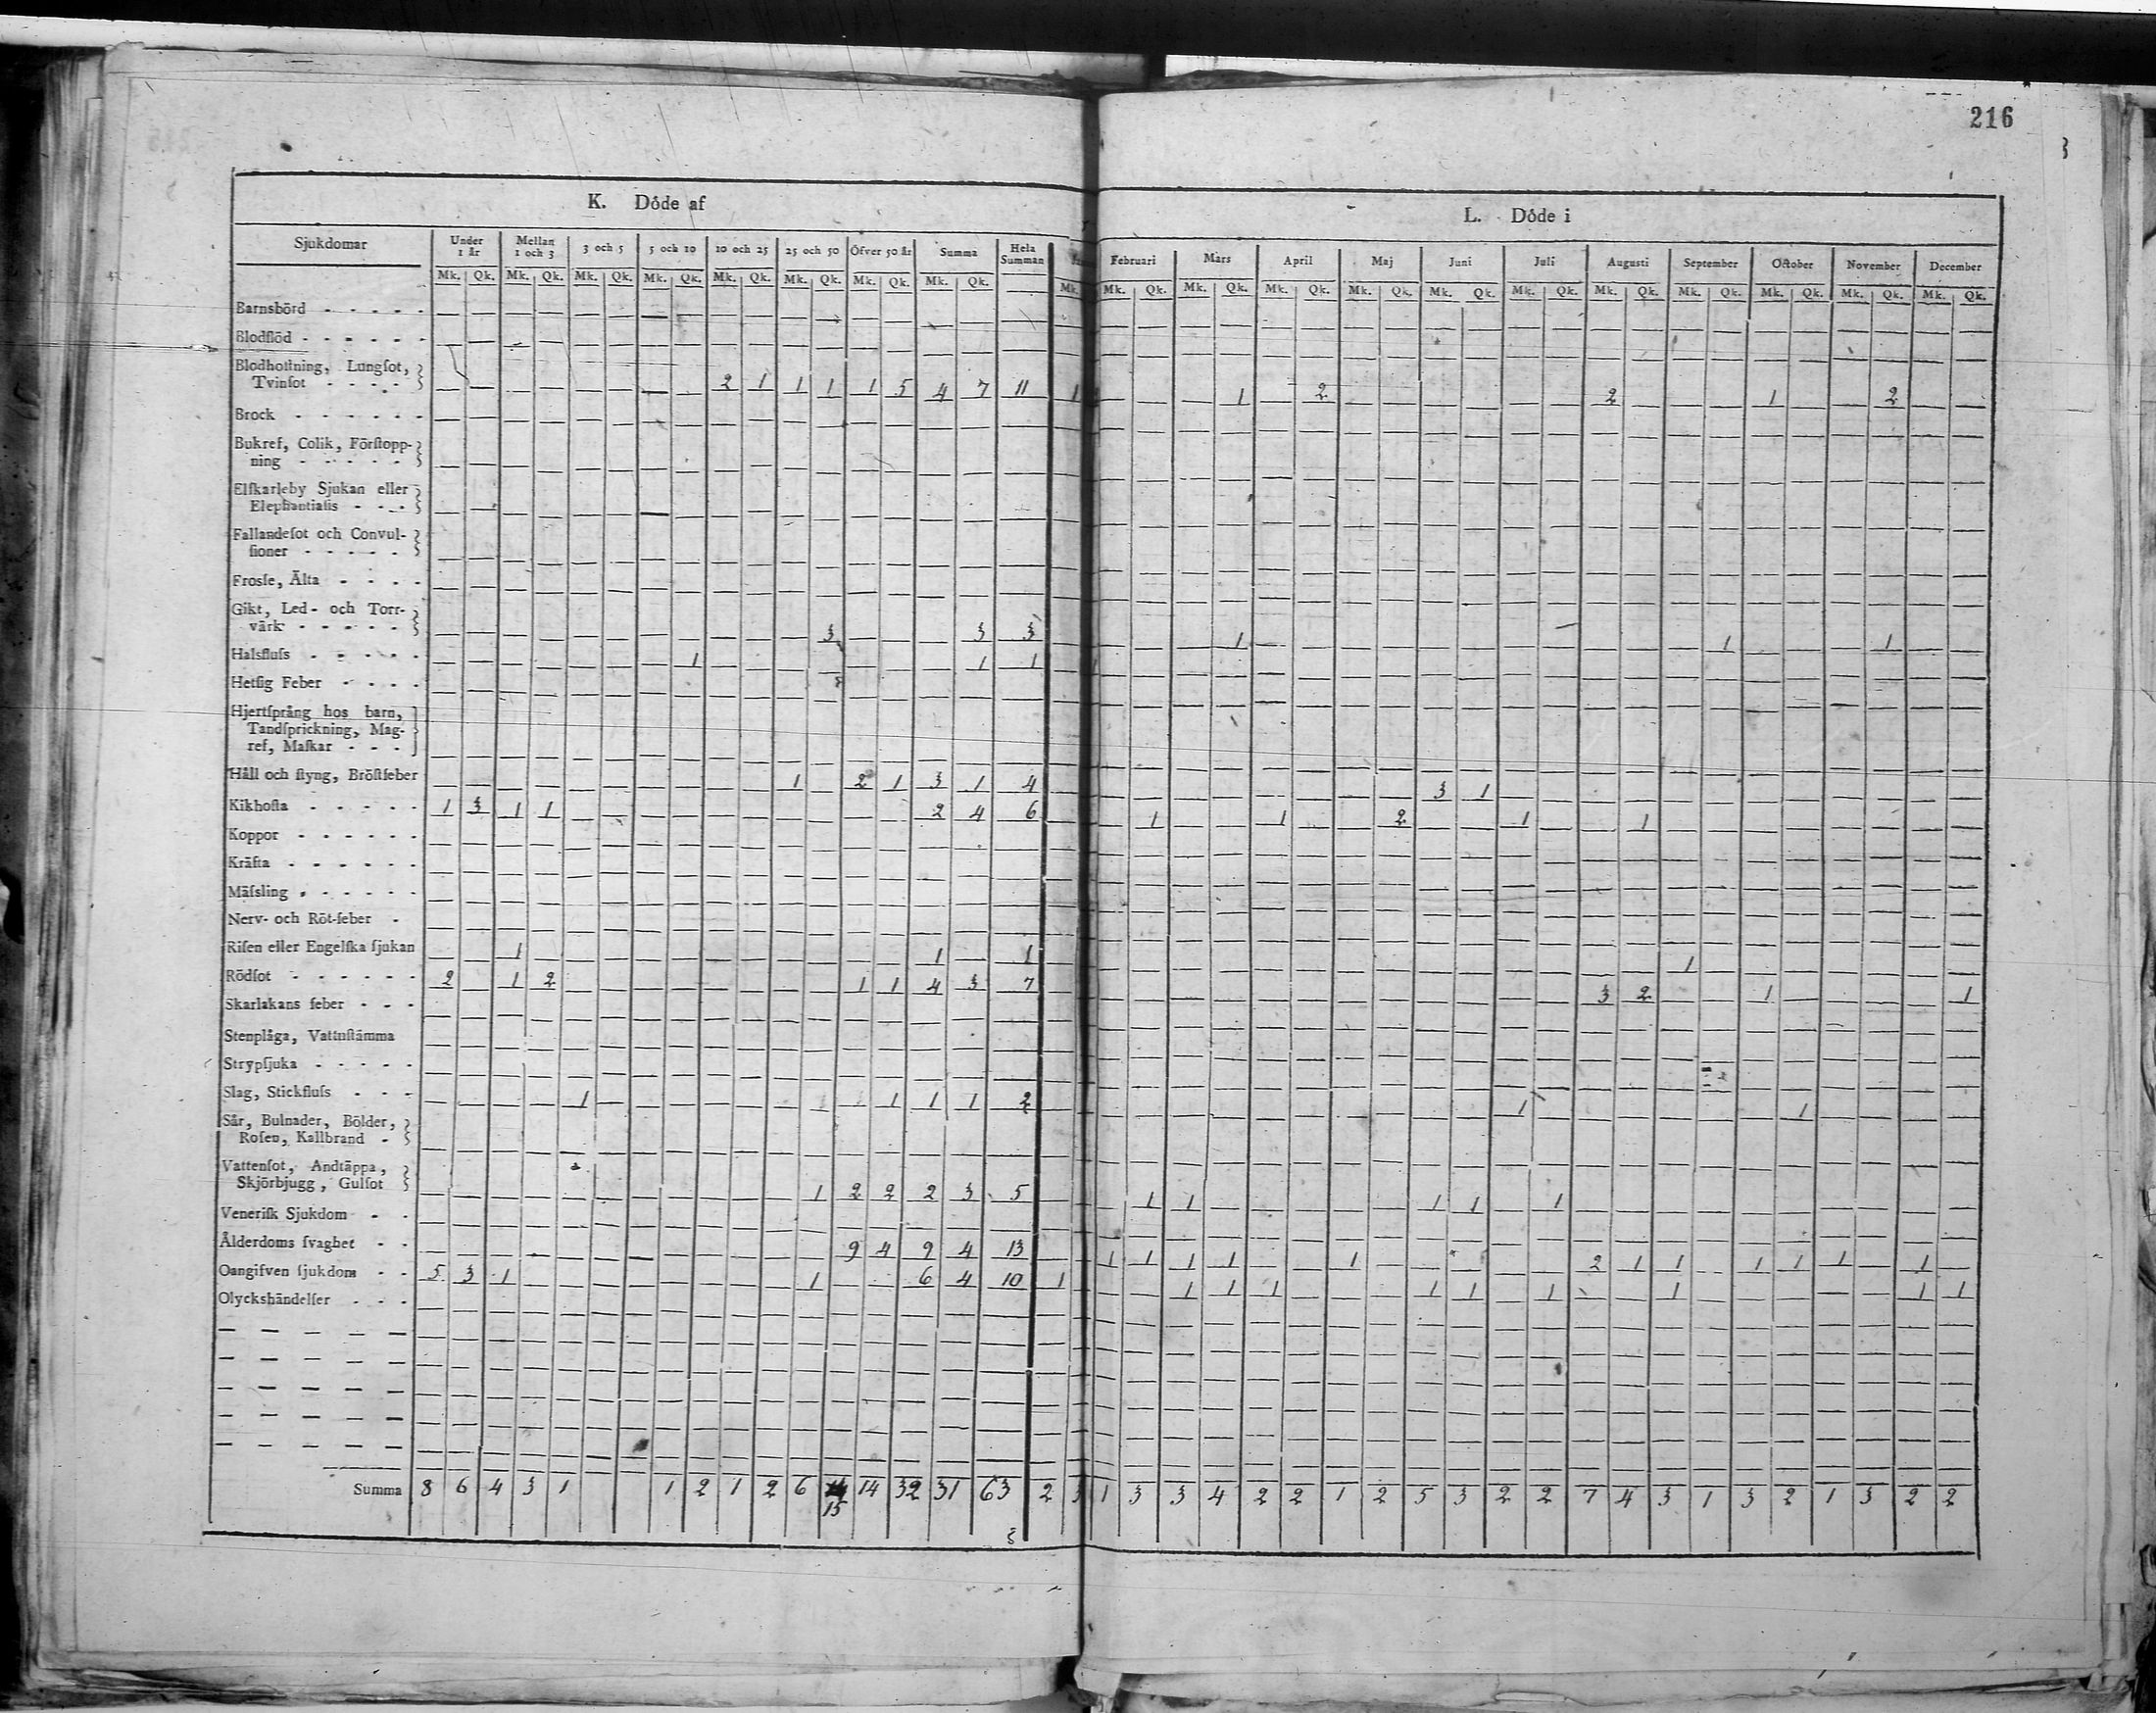 216
K. Döde af
L. Döde i
Sjukdomar Under 1 år Mellan 1 och 3 3 och 5 5 och 10 10 och 25 25 och 50 Öfver 50 år Summa Hela Summan Februari Mars April Maj Juni Juli Augusti September October November December
Mk. Qk. Mk. Qk. Mk. Qk. Mk. Qk. Mk. Qk. Mk. Qk. Mk. Qk. Mk. Qk. Mk. Mk. Qk. Mk. Qk. Mk. Qk. Mk. Qk. Mk. Qk. Mk. Qk. Mk. Qk. Mk. Qk. Mk. Qk. Mk. Qk. Mk. Qk.
Barnsbörd - - - - -
Blodflöd - - - - - -
Blodhostning, Lungsot,
Tvinsot - - - - 2 1 1 1 1 5 4 7 11 1 1 2 2 1 2
Brock - - - - - -
Bukref, Colik, Förstopp-
ning - - - - -
Elfkarleby Sjukan eller
Elephantiasis - - -
Fallandesot och Convul-
sioner - - - - -
Frosse, Älta - - - -
Gikt, Led- och Torr-
värk - - - - - 3 3 3 1 1 1
Halsfluss - - - - - 1 1 1
Hetsig Feber - - - -
Hjertsprång hos barn,
Tandsprickning, Mag-
ref, Maskar - - -
Håll och styng, Bröstfeber 1 2 1 3 1 4 3 1
Kikhosta - - - - - 1 3 1 1 2 4 6 1 1 2 1 1
Koppor - - - - - -
Kräfta - - - - - -
Mässling - - - - - -
Nerv- och Röt-feber -
Risen eller Engelska sjukan 1 1 1 1
Rödsot - - - - - - 2 1 2 1 1 4 3 7 3 2 1 1
Skarlakans feber - - -
Stenplåga, Vattnstämma
Strypsjuka - - - - -
Slag, Stickfluss - - - 1 1 1 1 2 1 1
Sår, Bulnader, Bölder,
Rosen, Kallbrand -
Vattensot, Andtäppa,
Skjörbjugg, Gulsot 1 2 2 2 3 5 1 1 1 1 1
Venerisk Sjukdom - -
Ålderdoms svaghet - - 9 4 9 4 13 1 1 1 1 1 2 1 1 1 1 1 1
Oangifven sjukdom - - 5 3 1 1 6 4 10 1 1 1 1 1 1 1 1 1 1
Olyckshändelser - - -
Summa 8 6 4 3 1 1 2 1 2 6 14 32 31 63 2 3 1 3 3 4 2 2 1 2 5 3 2 2 7 4 3 1 3 2 1 3 2 2
15